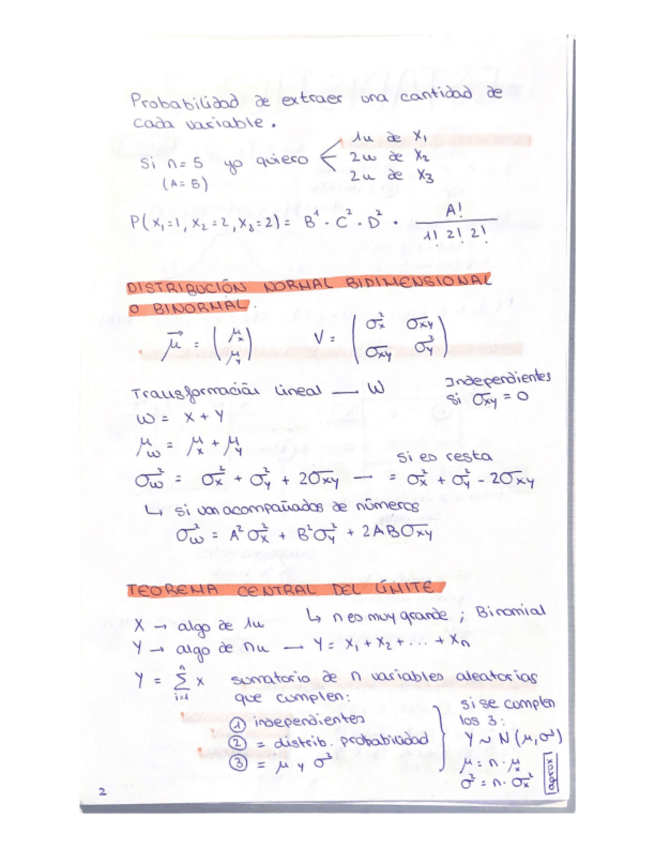 Probabilidad de extraer una cantidad de
cada variable.
1u de X₁
Si n=5 yo quiero < 2u de X₂
(A=5) 2u de X₃
P(X₁=1, X₂=2, X₃=2) = B¹ · C² · D² · A! / 1! 2! 2!
DISTRIBUCIÓN NORMAL BIDIMENSIONAL
O BINORMAL.
μ⃗ = (μx μy) V = (σx² σxy σxy σy²)
Transformación lineal — W
Independientes
si σxy = 0
W = X + Y
μw = μx + μy
si es resta
σw² = σx² + σy² + 2σxy — = σx² + σy² - 2σxy
↳ si van acompañados de números
σw² = A²σx² + B²σy² + 2ABσxy
TEOREMA CENTRAL DEL LÍMITE
↳ n es muy grande ; Binomial
X → algo de 1u
Y → algo de nu — Y = X₁ + X₂ + ... + Xn
Y = Σ x sumatorio de n variables aleatorias
n
i=1
que cumplen:
① independientes
② = distrib. probabilidad
③ = μ y σ²
si se cumplen
los 3:
Y ~ N(μ, σ²)
μ = n · μx
σ² = n · σx²
aprox
2